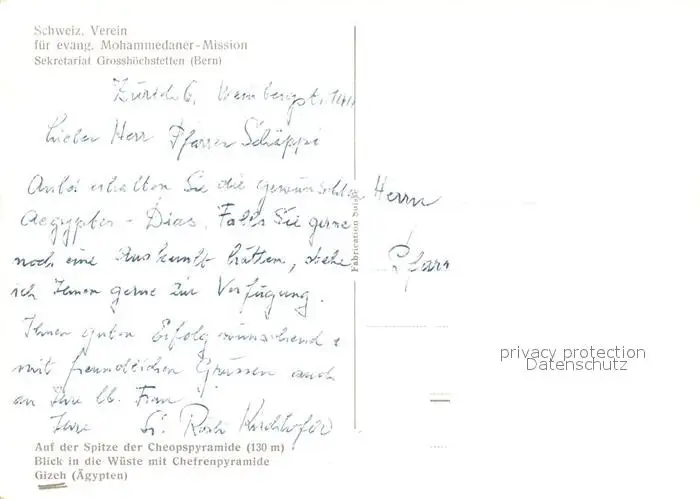 Schweiz. Verein
für evang. Mohammedaner-Mission
Sekretariat Grosshöchstetten (Bern)
Zürich 6, Weinbergstr.
Lieber Herr Pfarrer Schäppi
Anbei erhalten Sie die gewünschten
Aegypten - Dias. Falls Sie gerne
noch eine Auskunft hätten, stehe
ich Ihnen gerne zur Verfügung.
Ihnen guten Erfolg wünschend &
mit freundlichen Grüssen auch
an Ihre lb. Frau
Ihre
Auf der Spitze der Cheopspyramide (130 m)
Blick in die Wüste mit Chefrenpyramide
Gizeh (Ägypten)
Fabrication Suisse
Herrn
Pfarr
privacy protection
Datenschutz